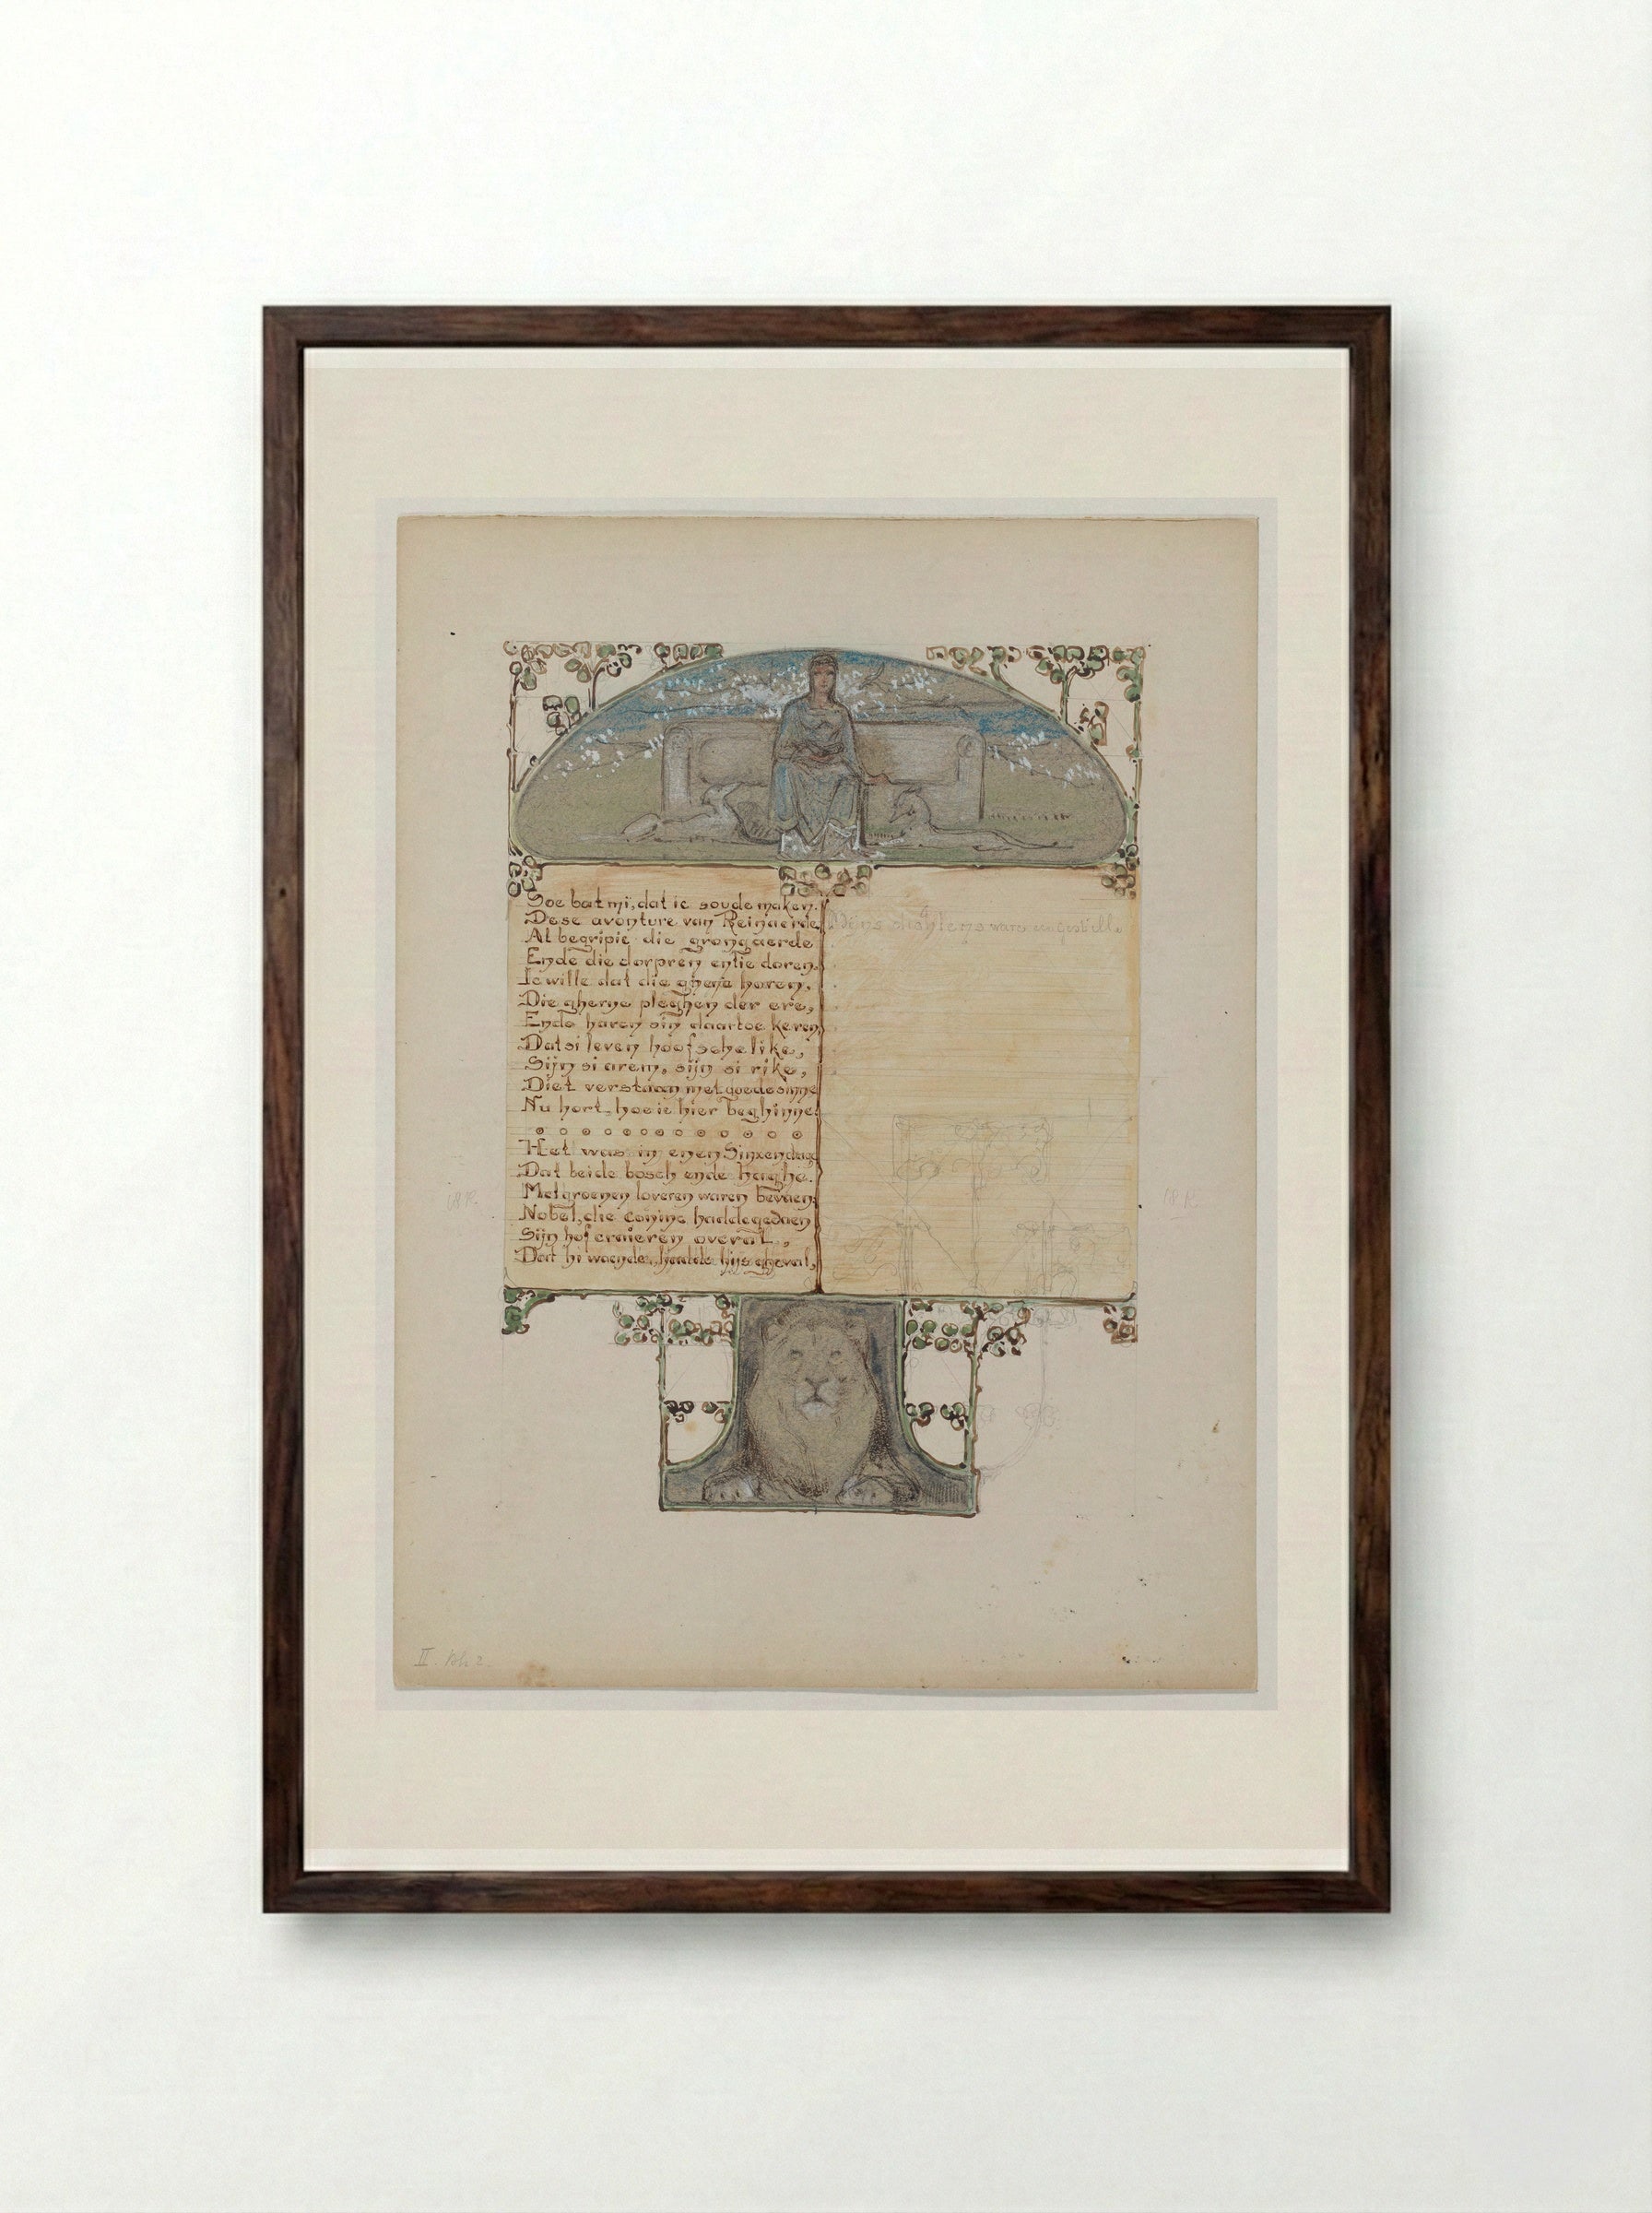 Soe bat mi, dat ic soude maken.
Dese avonture van Reinaerde
Al begripic die grongaerde
Ende die dorpren entie doren,
Ic wille dat die ghene horen,
Die gherne pleghen der ere,
Ende haren sin daartoe keren,
Dat si leven hoofschelike,
Sijn si arem, sijn si rike,
Diet verstaan met goede sinne
Nu hort hoe ic hier beghinne.
Het was in enen Sinxendage
Dat beide bosch ende haghe.
Met groenen loveren waren bevaen.
Nobel, die coninc hadde gedaen
Sijn hof craieren overal,
Dat hi waende, hadde hijs gheval,
ware
18 R.
18 R.
II.